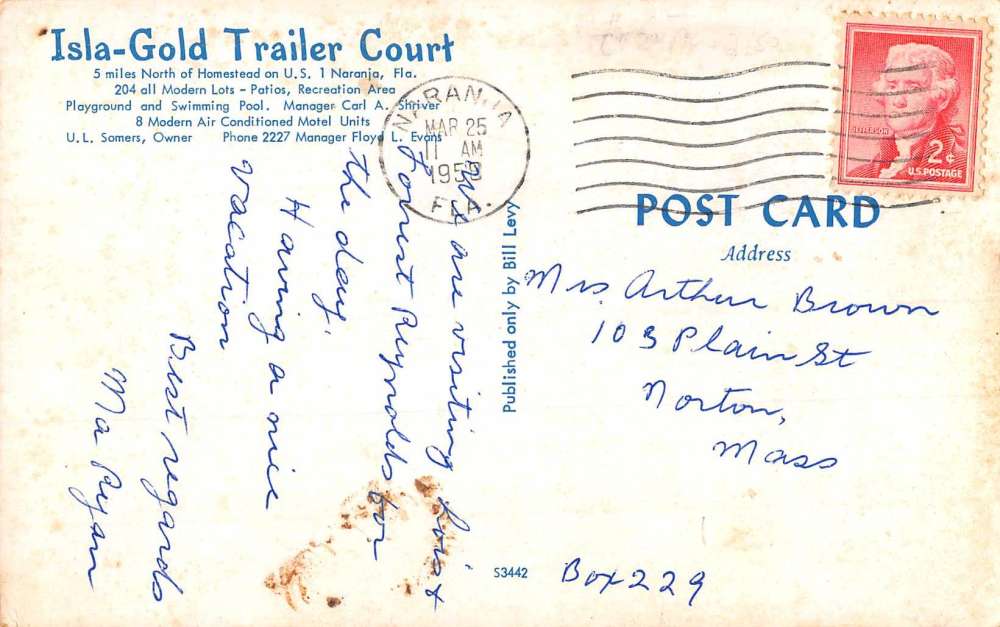 Isla-Gold Trailer Court
5 miles North of Homestead on U.S. 1 Naranja, Fla.
204 all Modern Lots - Patios, Recreation Area
Playground and Swimming Pool. Manager Carl A. Shriver
8 Modern Air Conditioned Motel Units
U.L. Somers, Owner Phone 2227 Manager Floyd L. Evans
NARANJA
MAR 25
11 AM
FLA.
JEFFERSON
2¢
U.S. POSTAGE
We are visiting Lois &
Forrest Reynolds for
the day.
Having a nice
vacation
Best regards
Ma Ryan
Published only by Bill Levy
POST CARD
Address
Mrs. Arthur Brown
103 Plain St
Norton,
Mass
S3442
Box 229